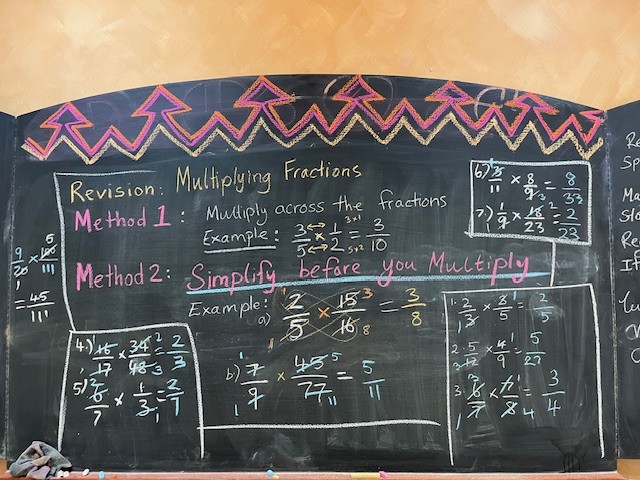 Revision: Multiplying Fractions
Method 1: Multiply across the fractions
Example: 3/5 × 1/2 = 3/10
3×1
5×2
Method 2: Simplify before you Multiply
Example:
a) 2/5 × 15/16 = 3/8
b) 7/9 × 45/77 = 5/11
9/20 × 100/111
= 45/111
4.) 16/17 × 34/48 = 2/3
5) 6/7 × 1/3 = 2/7
6) 3/11 × 8/9 = 8/33
7) 1/9 × 18/23 = 2/23
1. 2/3 × 8/5 = 2/5
2. 5/12 × 4/9 = 5/27
3. 6/7 × 7/8 = 3/4
Re
Sp
Ma
Re
If